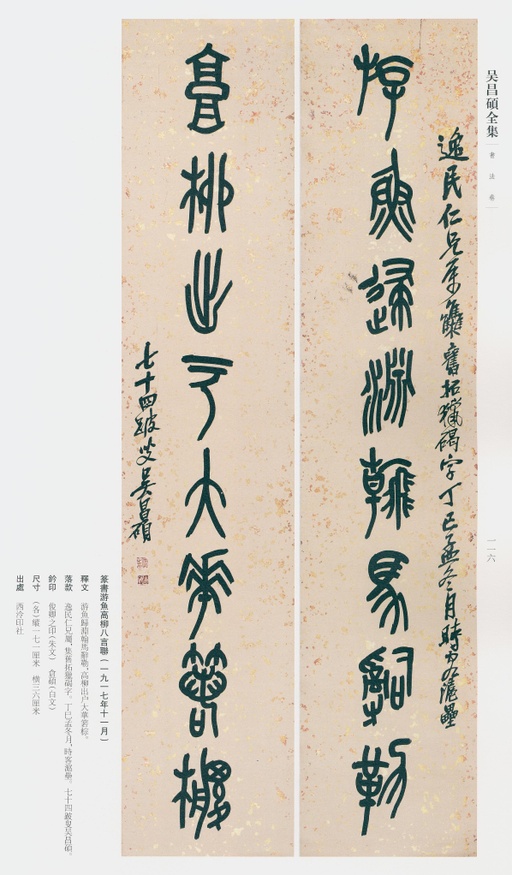 吴昌碩全集
書法卷
一一六
逸民仁兄属集舊拓獵碣字丁巳孟冬月時客滬壘
游魚歸淵翰馬辭勒
高柳出戶大華箸椶
七十四跛叟吴昌碩
篆書游魚高柳八言聯(一九一七年十一月)
釋文 游魚歸淵翰馬辭勒,高柳出戶大華箸椶。
落款 逸民仁兄屬,集舊拓獵碣字。丁巳孟冬月,時客滬壘。七十四跛叟吴昌碩。
鈐印 俊卿之印(朱文) 倉碩(白文)
尺寸 (各)縱一七一厘米 橫三六厘米
出處 西泠印社